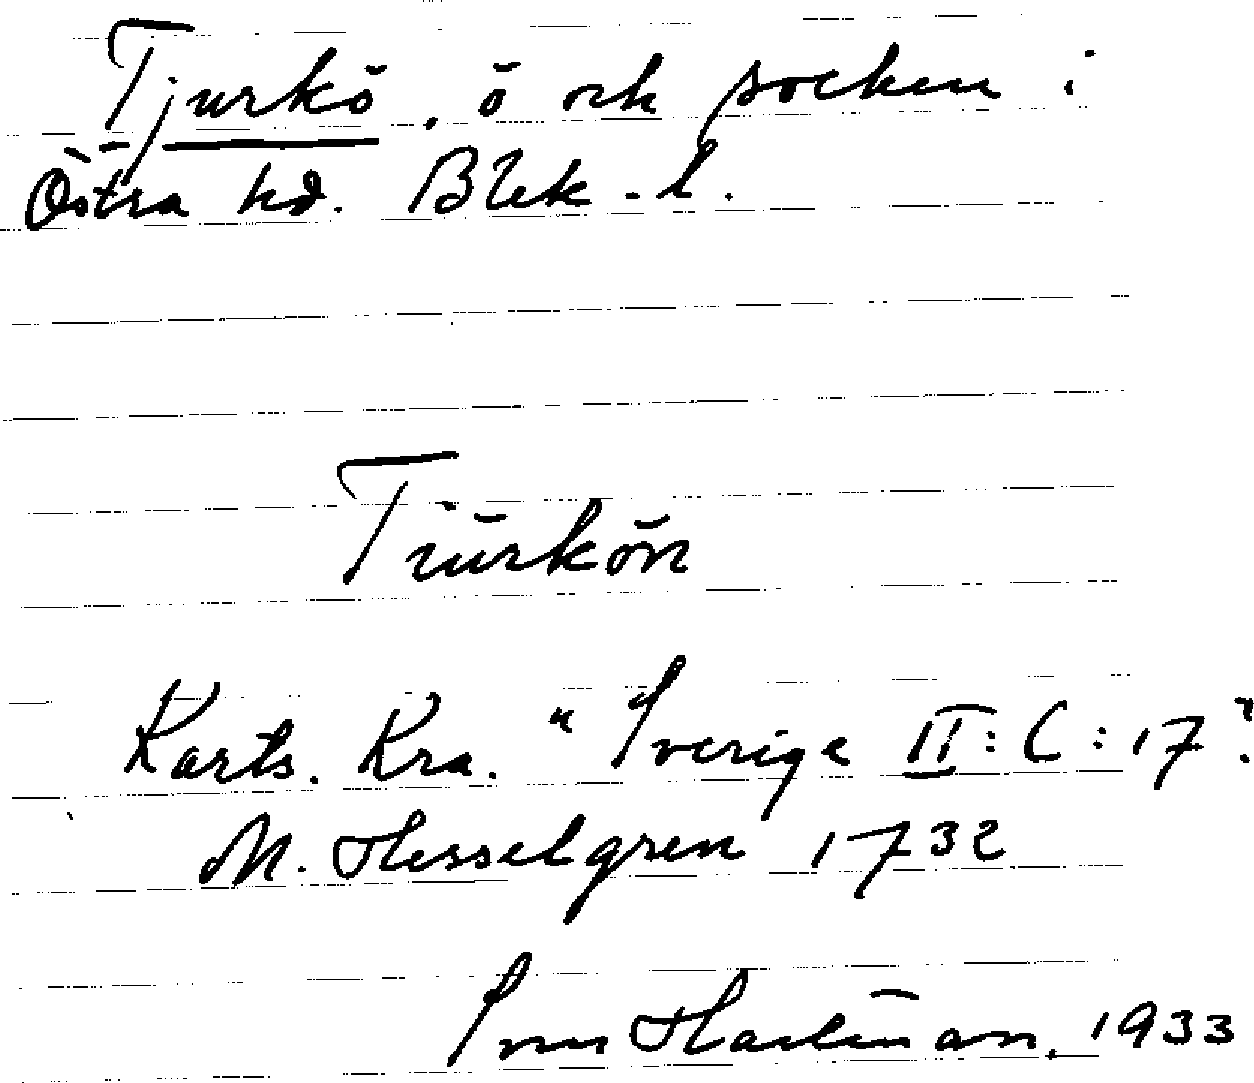 Tjurkö, ö och socken i
Östra hd. Blek. l.
Tiurkön
Karts. Kra. "Sverige II: C: 17".
M. Hesselgren 1732
1933